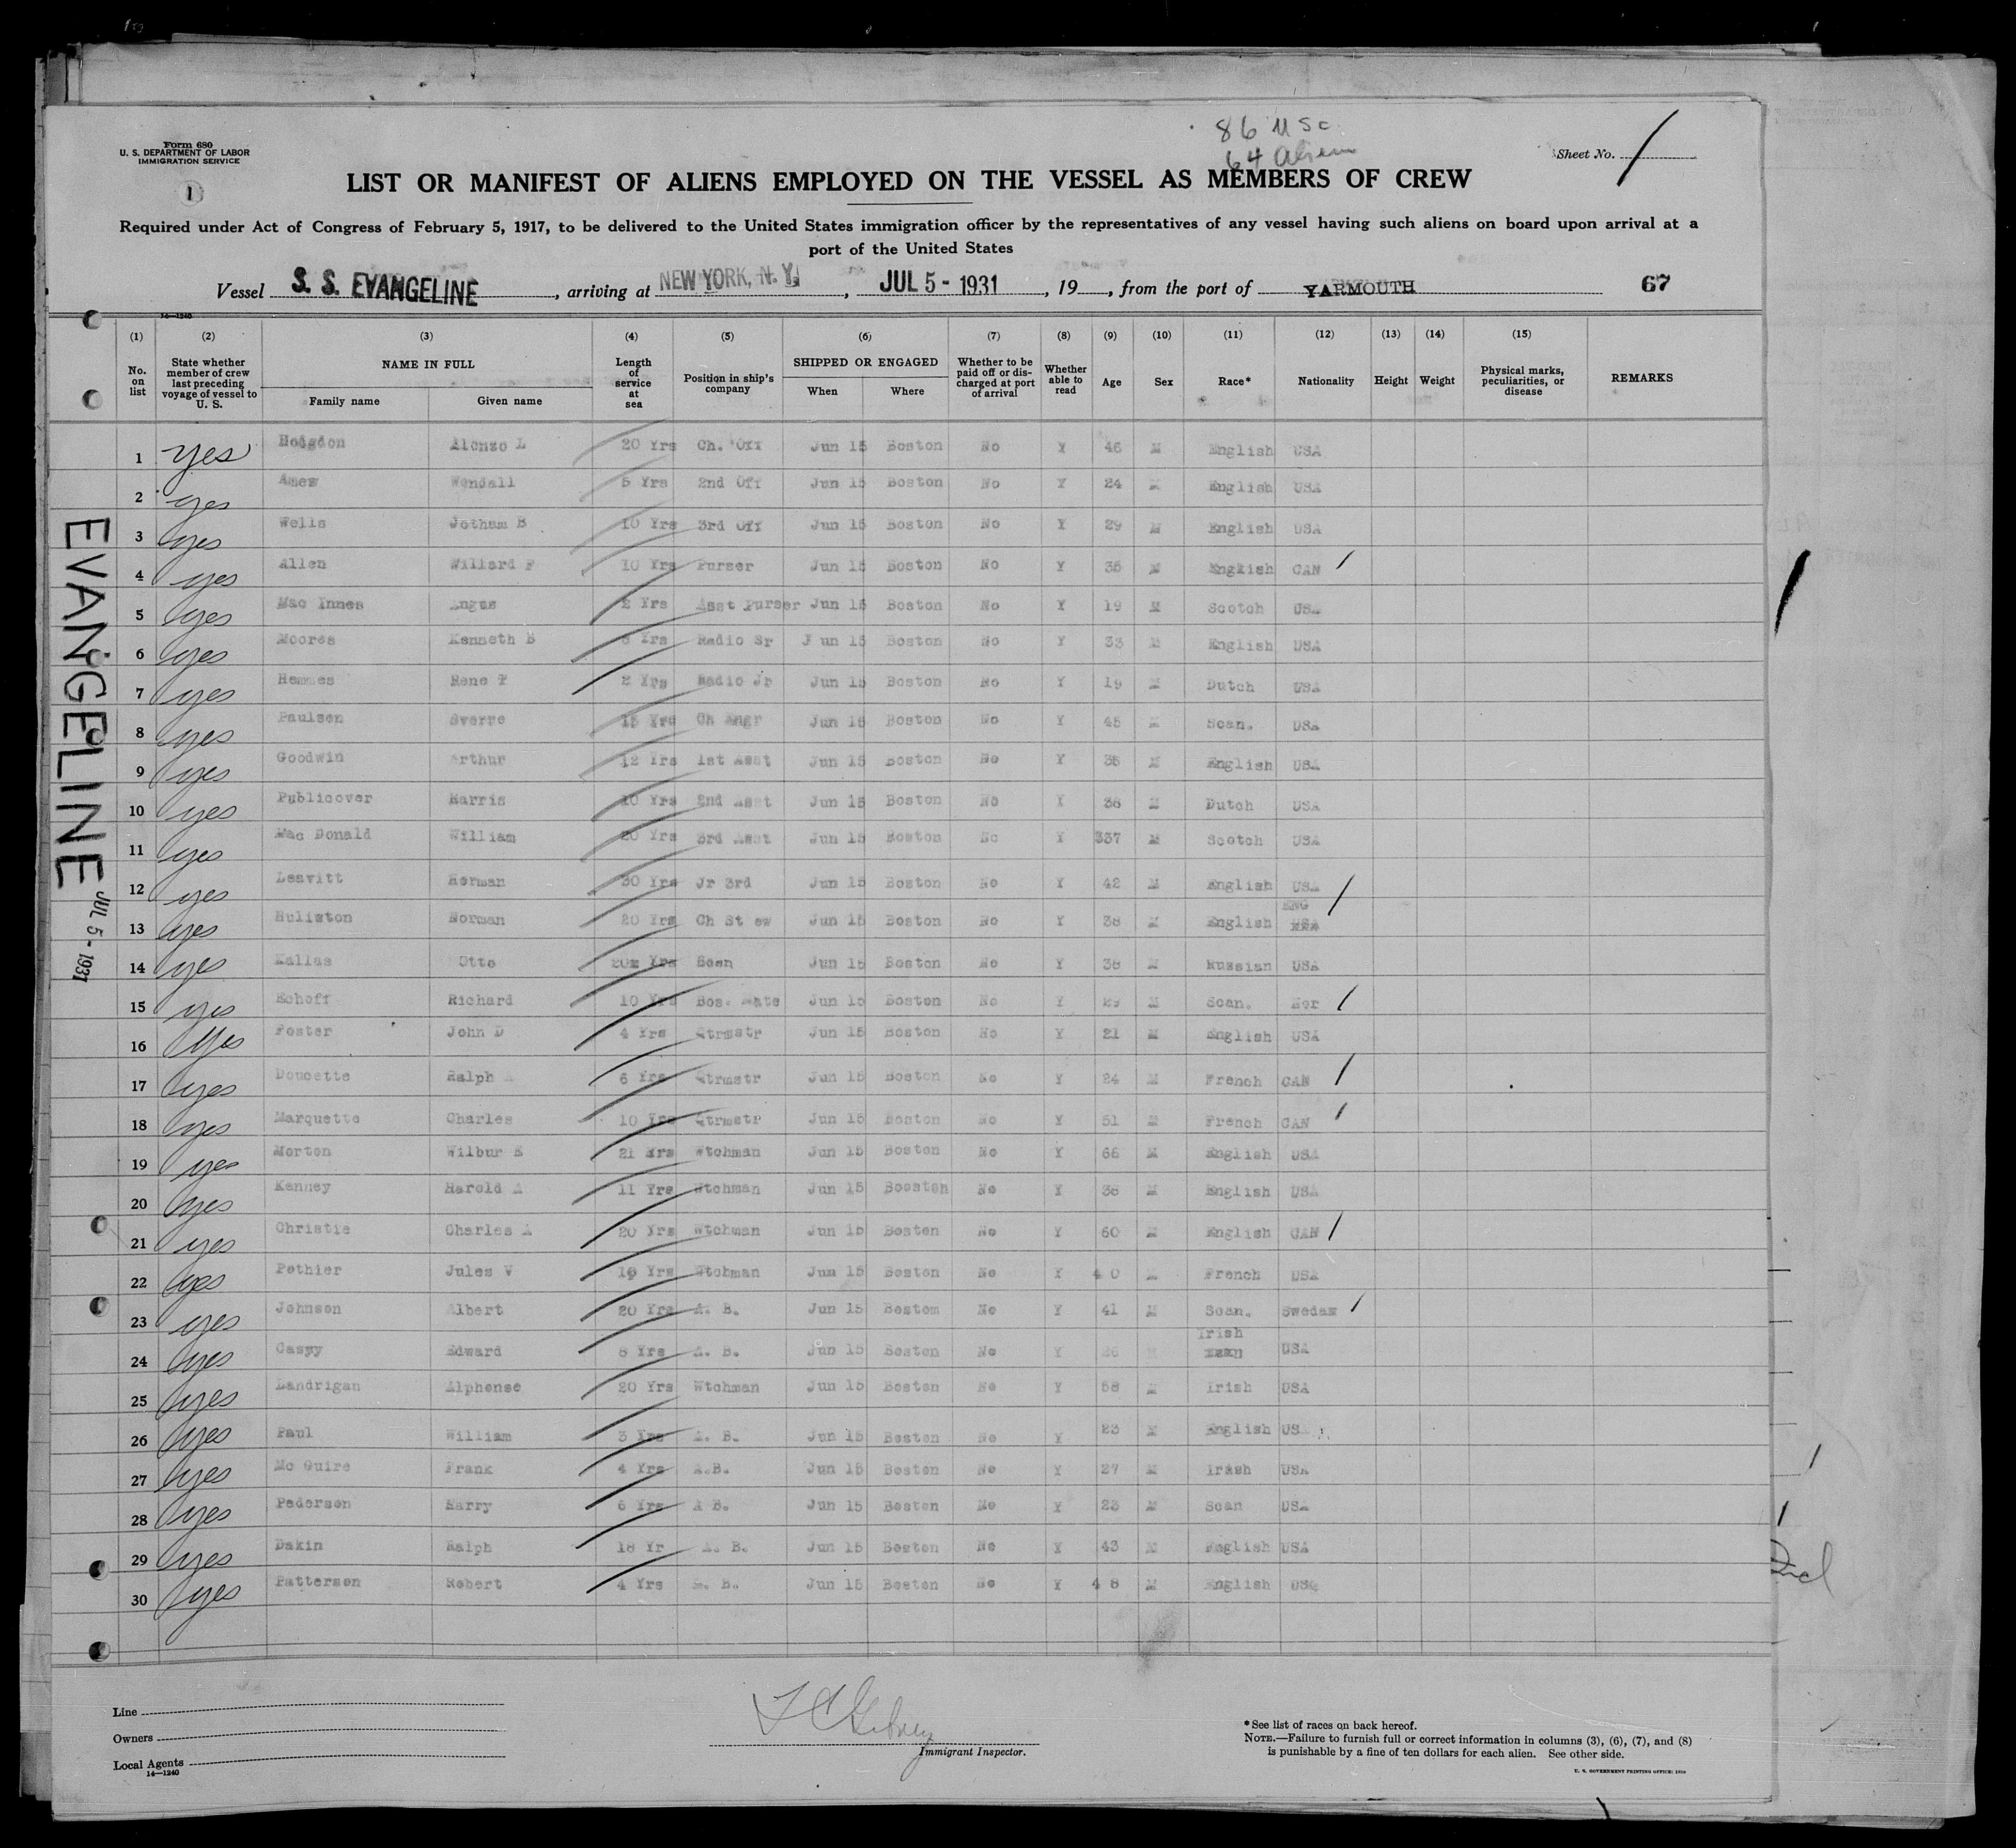 86 USC
64 Aliens
Form 680
U. S. DEPARTMENT OF LABOR
IMMIGRATION SERVICE
1
Sheet No. 1
LIST OR MANIFEST OF ALIENS EMPLOYED ON THE VESSEL AS MEMBERS OF CREW
Required under Act of Congress of February 5, 1917, to be delivered to the United States immigration officer by the representatives of any vessel having such aliens on board upon arrival at a
port of the United States
Vessel S. S. EVANGELINE, arriving at NEW YORK, N. Y., JUL 5 - 1931, 19, from the port of YARMOUTH 67
14—1240
(1) (2) (3) (4) (5) (6) (7) (8) (9) (10) (11) (12) (13) (14) (15)
No. on list State whether member of crew last preceding voyage of vessel to U. S. NAME IN FULL Family name Given name Length of service at sea Position in ship's company SHIPPED OR ENGAGED When Where Whether to be paid off or discharged at port of arrival Whether able to read Age Sex Race* Nationality Height Weight Physical marks, peculiarities, or disease REMARKS
1 yes Hodgdon Alonzo L 20 Yrs Ch. Off Jun 15 Boston No Y 46 M English USA
2 yes Ames Wendall 5 Yrs 2nd Off Jun 15 Boston No Y 24 M English USA
3 yes Wells Jotham B 10 Yrs 3rd Off Jun 15 Boston No Y 29 M English USA
4 yes Allen Willard F 10 Yrs Purser Jun 15 Boston No Y 35 M Engkish CAN
5 yes Mac Innes Angus 2 Yrs Asst Purser Jun 15 Boston No Y 19 M Scotch USA
6 yes Moores Kenneth B Yrs Radio Sr J un 15 Boston No Y 33 M English USA
7 yes Hemmes Rene P 2 Yrs Radio Jr Jun 15 Boston No Y 19 M Dutch USA
8 yes Paulsen Sverre 15 Yrs Ch Engr Jun 15 Boston No Y 45 M Scan. USA
9 yes Goodwin Arthur 12 Yrs 1st Asst Jun 15 Boston No Y 35 M English USA
10 yes Publicover Harris 10 Yrs 2nd Asst Jun 15 Boston No Y 36 M Dutch USA
11 yes Mac Donald William 20 Yrs 3rd Asst Jun 15 Boston No Y 337 M Scotch USA
12 yes Leavitt Herman 30 Yrs Jr 3rd Jun 15 Boston No Y 42 M English USA
13 yes Huliston Norman 20 Yrs Ch St ew Jun 15 Boston No Y 38 M English ENG
14 yes Kallas Otto 20 Yrs Bosn Jun 15 Boston No Y 38 M Russian USA
15 yes Echoff Richard 10 Yrs Bos. Mate Jun 15 Boston No Y 29 M Scan. Nor
16 yes Foster John D 4 Yrs Qtrmstr Jun 15 Boston No Y 21 M English USA
17 yes Doucette Ralph 6 Yrs Qtrmstr Jun 15 Boston No Y 24 M French CAN
18 yes Marquette Charles 10 Yrs Qtrmstr Jun 15 Boston No Y 51 M French CAN
19 yes Morton Wilbur E 21 Yrs Wtchman Jun 15 Boston No Y 66 M English USA
20 yes Kenney Harold A 11 Yrs Wtchman Jun 15 Booston No Y 36 M English USA
21 yes Christie Charles A 20 Yrs Wtchman Jun 15 Boston No Y 60 M English CAN
22 yes Pothier Jules V 19 Yrs Wtchman Jun 15 Boston No Y 4 0 M French USA
23 yes Johnson Albert 20 Yrs A. B. Jun 15 Bostom No Y 41 M Scan. Sweden
24 yes Edward 8 Yrs A. B. Jun 15 Boston No Y 26 M Irish USA
25 yes Landrigan Alphonse 20 Yrs Wtchman Jun 15 Boston No Y 58 M Irish USA
26 yes Paul William 3 Yrs A. B. Jun 15 Boston No Y 23 M English US
27 yes Mc Guire Frank 4 Yrs A.B. Jun 15 Boston No Y 27 M Irish USA
28 yes Pederson Harry 6 Yrs A B. Jun 15 Boston No Y 23 M Scan USA
29 yes Dakin Ralph 18 Yr A. B. Jun 15 Boston No Y 43 M English USA
30 yes Patterson Robert 4 Yrs A. B. Jun 15 Boston No Y 4 8 M English USA
EVANGELINE JUL 5 - 1931
2nd
Line
Owners
Local Agents
14—1240
Immigrant Inspector.
*See list of races on back hereof.
NOTE.—Failure to furnish full or correct information in columns (3), (6), (7), and (8)
is punishable by a fine of ten dollars for each alien. See other side.
U. S. GOVERNMENT PRINTING OFFICE: 1930